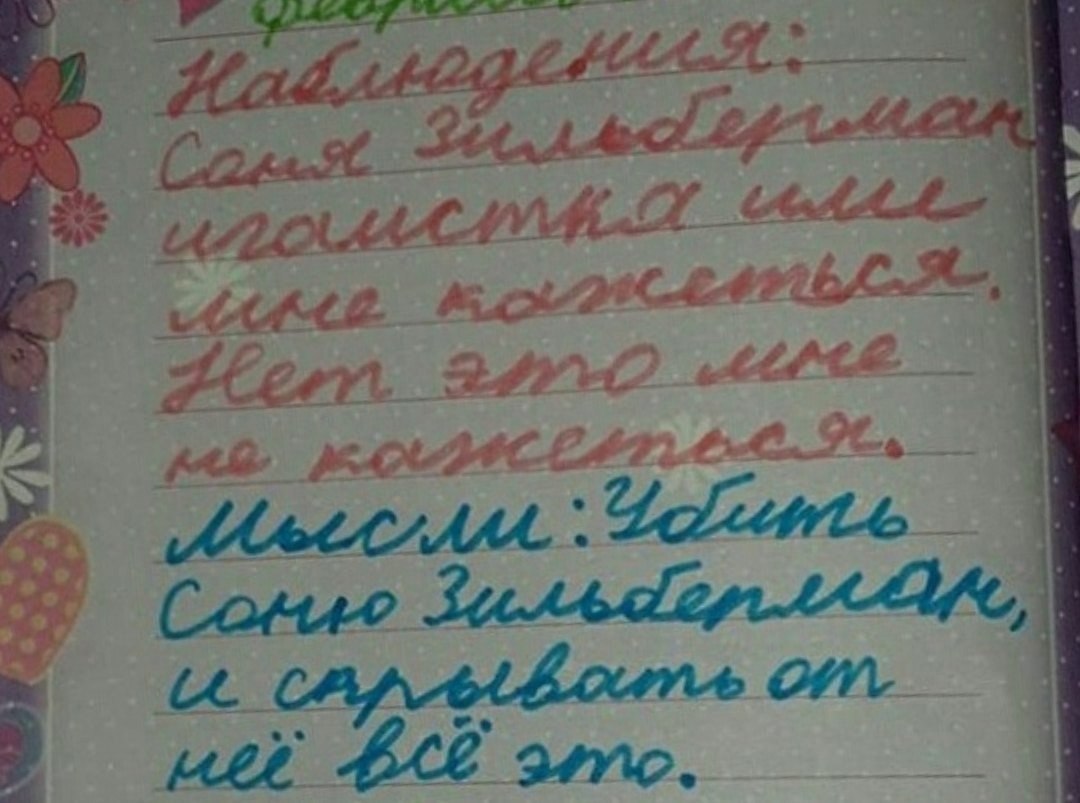 февраля
Наблюдения:
Соня Зильберман
игоистка или
мне кажеться.
Нет это мне
не кажеться.
Мысли: Убить
Соню Зильберман,
и скрывать от
неё всё это.